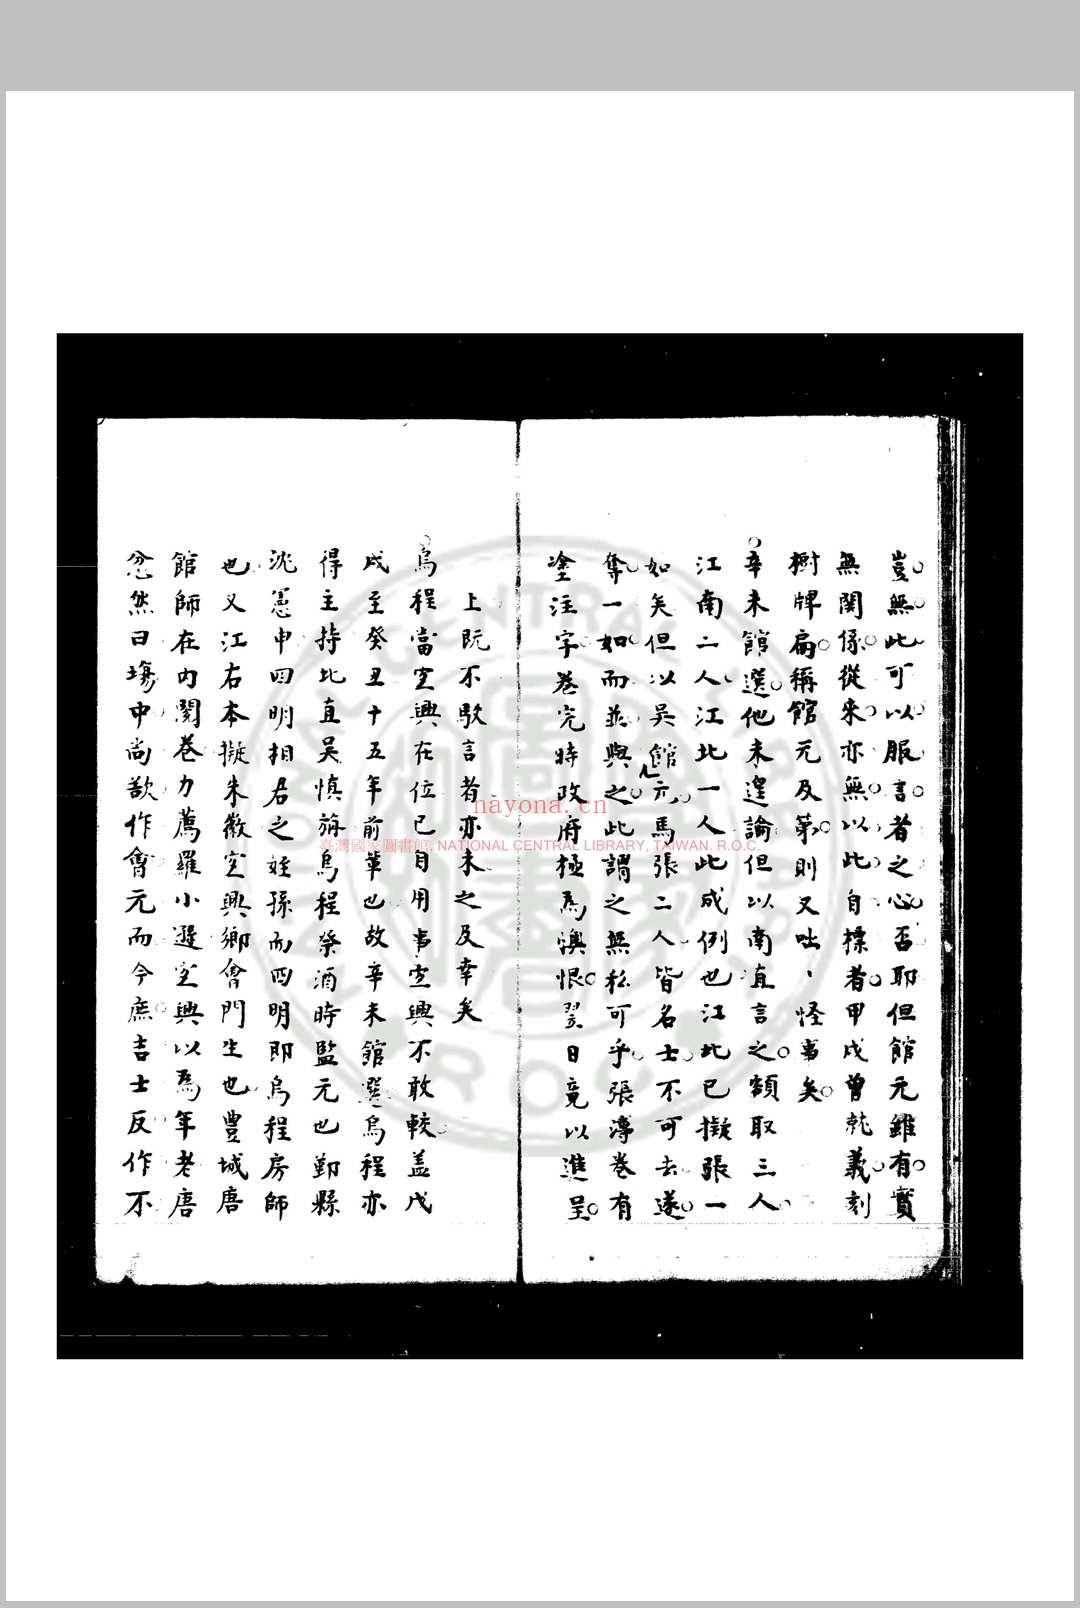 豈無此可以服言者之心否耶但館元雖有實
無関係從來亦無以此自標者甲戌曾就義刻
樹牌扁稱館元及第則又咄、怪事矣
辛未館選他未遑論但以南直言之額取三人
江南二人江北一人此成例也江北已擬張一
如矣但以吳館元馬張二人皆名士不可去遂
奪一如而並與之此謂之無私可乎張溥卷有
塗注字卷完時政府極為懊恨翌日竟以進呈
上既不駁言者亦未之及幸矣
烏程當宜興在位已自用事宜興不敢較盖戊
戌至癸丑十五年前軰也故辛未館選烏程亦
得主持比直吳慎旃烏程祭酒時監元也鄞縣
沈憲申四明相君之姪孫而四明即烏程房師
也又江右本擬朱徽宜興鄉會門生也豐城唐
館師在内閣卷力薦羅小遜宜興以為年老唐
忿然曰塲中尚敢作會元而今庶吉士反作不
nayona.cn
臺灣國家圖書館, NATIONAL CENTRAL LIBRARY, TAIWAN. R.O.C.